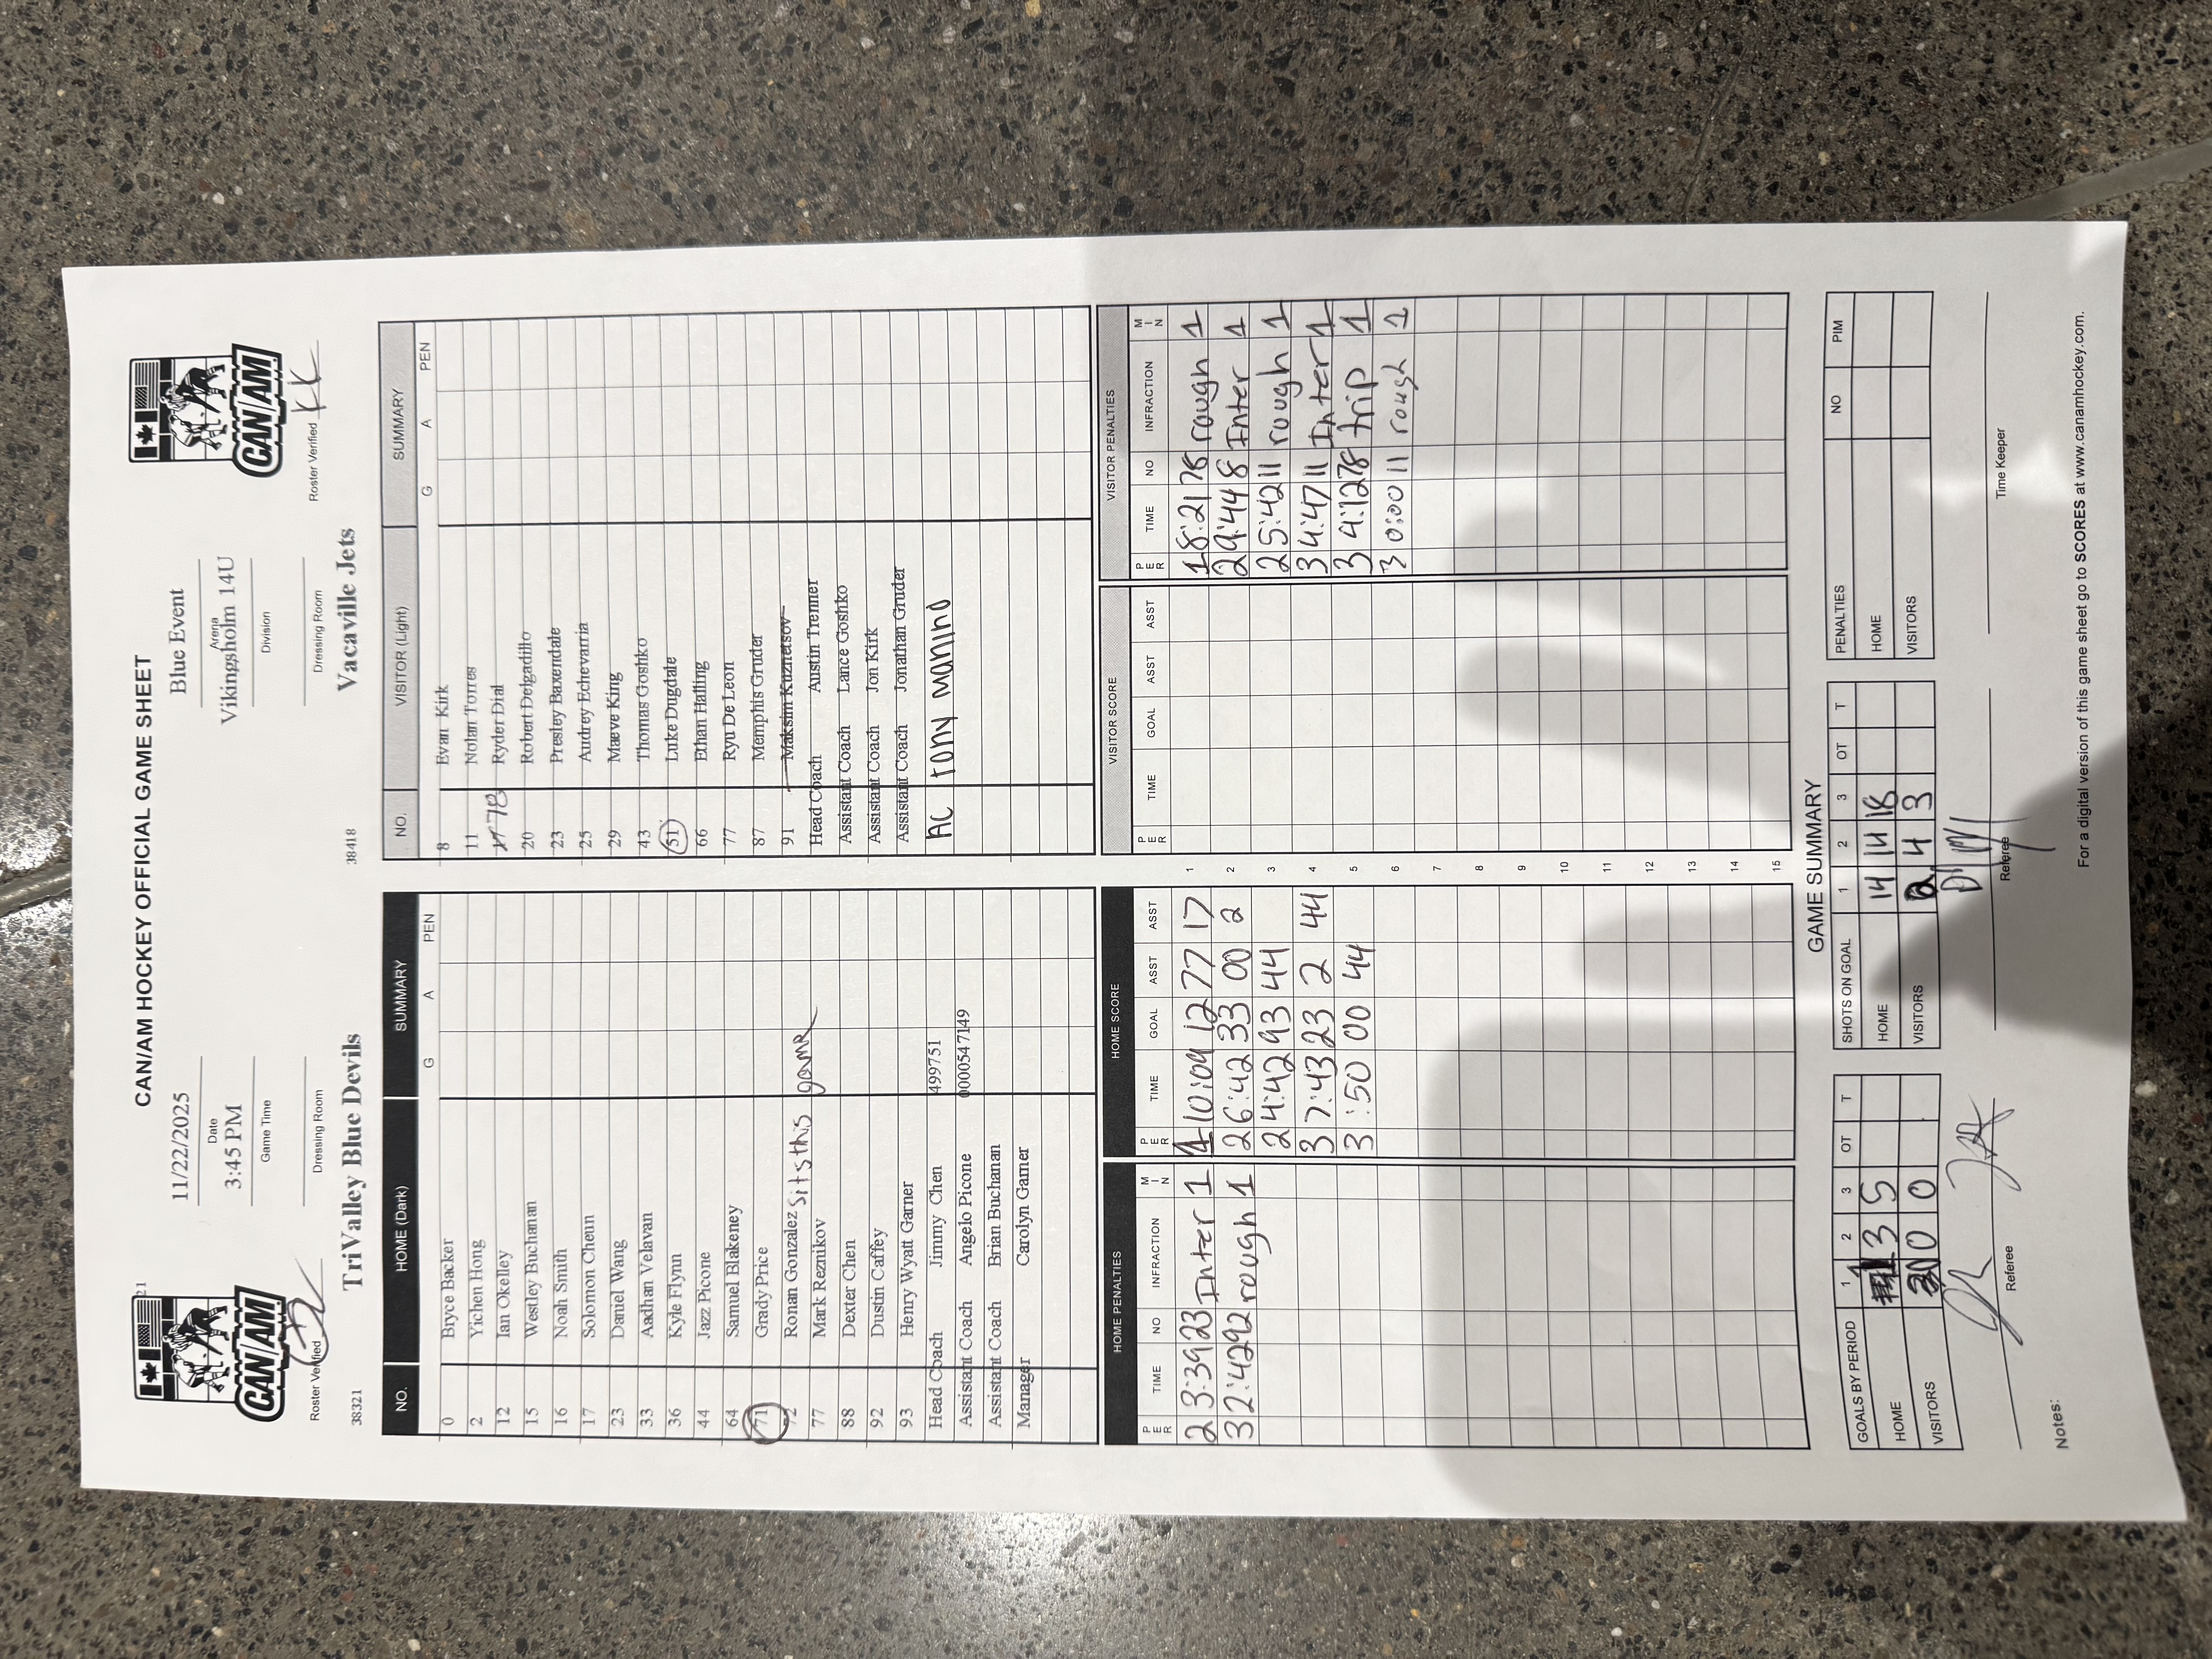 CAN/AM HOCKEY OFFICIAL GAME SHEET
21
CAN/AM
CAN/AM
11/22/2025
Date
3:45 PM
Game Time
Dressing Room
Blue Event
Arena
Vikingsholm 14U
Division
Dressing Room
Roster Verified
Roster Verified KK
38321 TriValley Blue Devils
38418 Vacaville Jets
NO. HOME (Dark) SUMMARY
G A PEN
0 Bryce Backer
2 Yichen Hong
12 Ian Okelley
15 Westley Buchanan
16 Noah Smith
17 Solomon Cheun
23 Daniel Wang
33 Aadhan Velavan
36 Kyle Flynn
44 Jazz Picone
64 Samuel Blakeney
71 Grady Price
72 Ronan Gonzalez Sits this game
77 Mark Reznikov
88 Dexter Chen
92 Dustin Caffey
93 Henry Wyatt Garner
Head Coach Jimmy Chen 499751
Assistant Coach Angelo Picone 0000547149
Assistant Coach Brian Buchanan
Manager Carolyn Garner
NO. VISITOR (Light) SUMMARY
G A PEN
8 Evan Kirk
11 Nolan Torres
17 78 Ryder Dial
20 Robert Delgadillo
23 Presley Baxendale
25 Audrey Echevarria
29 Maeve King
43 Thomas Goshko
51 Luke Dugdale
66 Ethan Halling
77 Ryu De Leon
87 Memphis Gruder
91 Maksim Kuznetsov
Head Coach Austin Trenner
Assistant Coach Lance Goshko
Assistant Coach Jon Kirk
Assistant Coach Jonathan Gruder
AC Tony Manino
HOME PENALTIES
PER TIME NO INFRACTION MIN
2 3:39 23 Inter 1
3 2:42 92 rough 1
HOME SCORE
PER TIME GOAL ASST ASST
1 10:09 12 77 17
2 6:42 33 00 2
2 4:42 93 44
3 7:43 23 2 44
3 :50 00 44
1
2
3
4
5
6
7
8
9
10
11
12
13
14
15
VISITOR SCORE
PER TIME GOAL ASST ASST
VISITOR PENALTIES
PER TIME NO INFRACTION MIN
1 8:21 78 rough 1
2 9:44 8 Inter 1
2 5:42 11 rough 1
3 4:47 11 Inter 1
3 4:12 78 trip 1
3 0:00 11 rough 1
GAME SUMMARY
GOALS BY PERIOD 1 2 3 OT T
HOME 1 3 5
VISITORS 0 0 0
SHOTS ON GOAL 1 2 3 OT T
HOME 14 14 18
VISITORS 2 4 3
PENALTIES NO PIM
HOME
VISITORS
Referee
Referee
Time Keeper
Notes:
For a digital version of this game sheet go to SCORES at www.canamhockey.com.